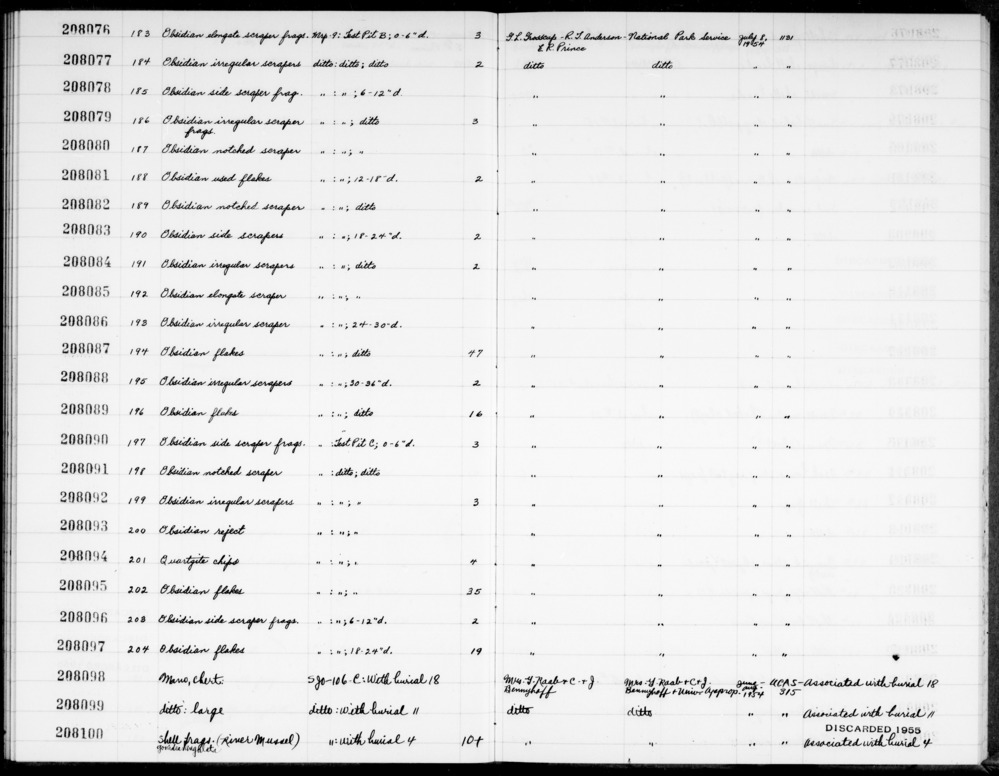 208076 183 Obsidian elongate scraper frags. Mrp-9: Test Pit B; 0-6"d. 3 - R.T. Anderson - National Park Service July 8, 1954 1131
& R. Prince
208077 184 Obsidian irregular scrapers ditto: ditto; ditto 2 ditto ditto " "
208078 185 Obsidian side scraper frag. " : " ; 6-12"d. " " " "
208079 186 Obsidian irregular scraper " : " ; ditto 3 " " " "
frags.
208080 187 Obsidian notched scraper " : " ; " " " " "
208081 188 Obsidian used flakes " : " ; 12-18"d. 2 " " " "
208082 189 Obsidian notched scraper " : " ; ditto " " " "
208083 190 Obsidian side scrapers " : " ; 18-24"d. 2 " " " "
208084 191 Obsidian irregular scrapers " : " ; ditto 2 " " " "
208085 192 Obsidian elongate scraper " : " ; " " " " "
208086 193 Obsidian irregular scraper " : " ; 24-30"d. " " " "
208087 194 Obsidian flakes " : " ; ditto 47 " " " "
208088 195 Obsidian irregular scrapers " : " ; 30-36"d. 2 " " " "
208089 196 Obsidian flakes " : " ; ditto 16 " " " "
208090 197 Obsidian side scraper frags. " : Test Pit C; 0-6"d. 3 " " " "
208091 198 Obsidian notched scraper " : ditto; ditto " " " "
208092 199 Obsidian irregular scrapers " : " ; " 3 " " " "
208093 200 Obsidian reject " : " ; " " " " "
208094 201 Quartzite chips " : " ; " 4 " " " "
208095 202 Obsidian flakes " : " ; " 35 " " " "
208096 203 Obsidian side scraper frags. " : " ; 6-12"d. 2 " " " "
208097 204 Obsidian flakes " : " ; 18-24"d. 19 " " " "
208098 Mano, chert. SJo-106-C: With burial 18 Mrs. Y. Raab & C. & J. Mrs. Y. Raab & C. & J. June- ACAS- Associated with burial 18
Bennyhoff Bennyhoff & Univ. Approp. Aug. 1954 315
208099 ditto: large ditto: with burial 11 ditto ditto " " Associated with burial 11
DISCARDED 1955
208100 Shell frags. (River Mussel) " : with burial 4 10+ " " " " Associated with burial 4